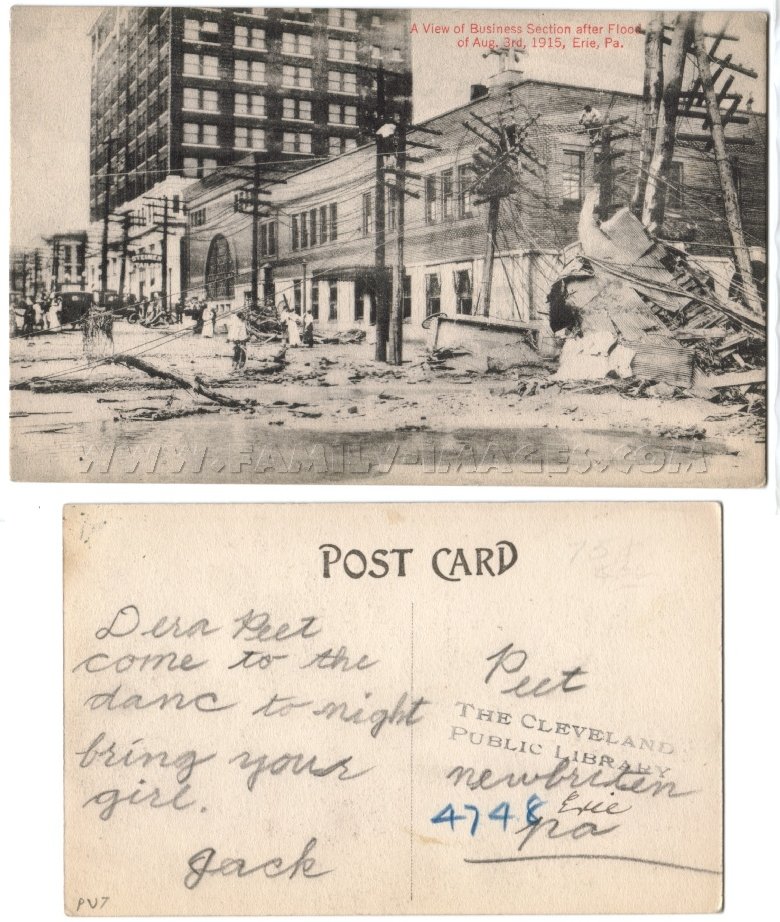 A View of Business Section after Flood
of Aug. 3rd, 1915, Erie, Pa.
WWW.FAMILY-IMAGES.COM
POST CARD
Dera Peet
come to the
danc to night
bring your
girl.
Jack
Peet
THE CLEVELAND
PUBLIC LIBRARY
newbriten
4748 Erie
pa
PV7